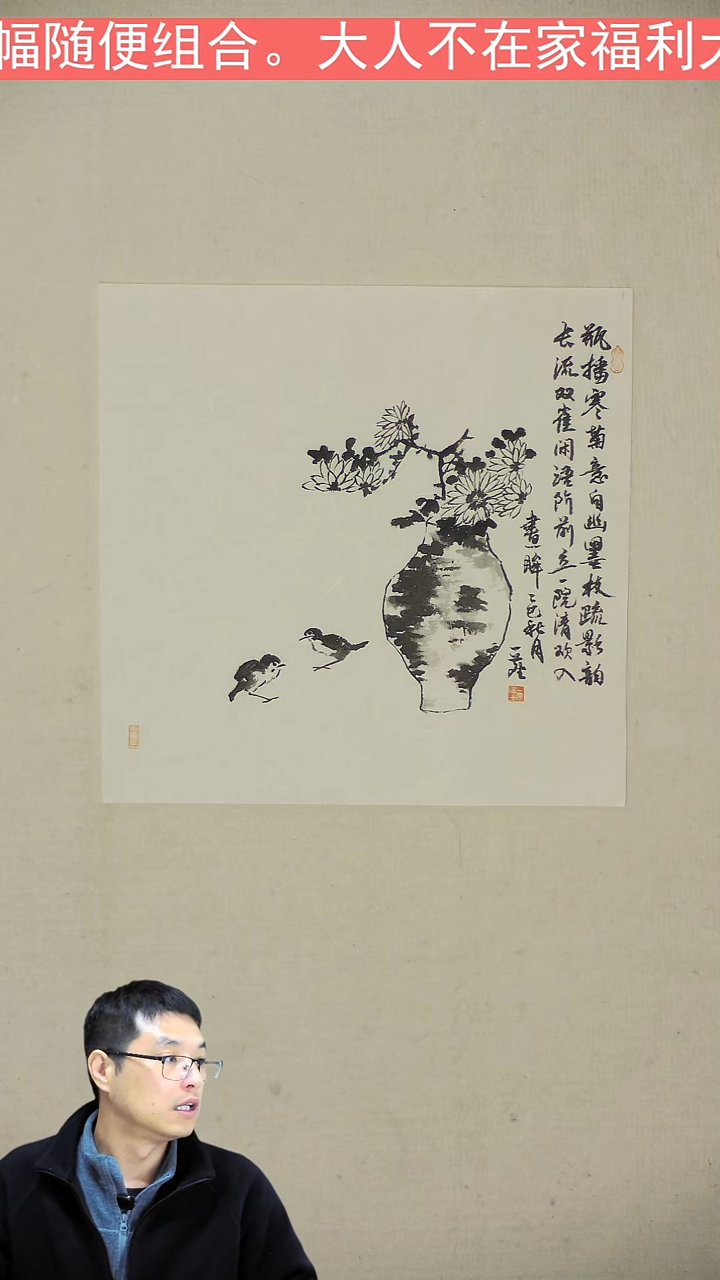 幅随便组合。大人不在家福利大
瓶插寒菊意自幽墨枝疏影韵
长流双雀闲语阶前立一院清欢入
画眸 乙巳秋月